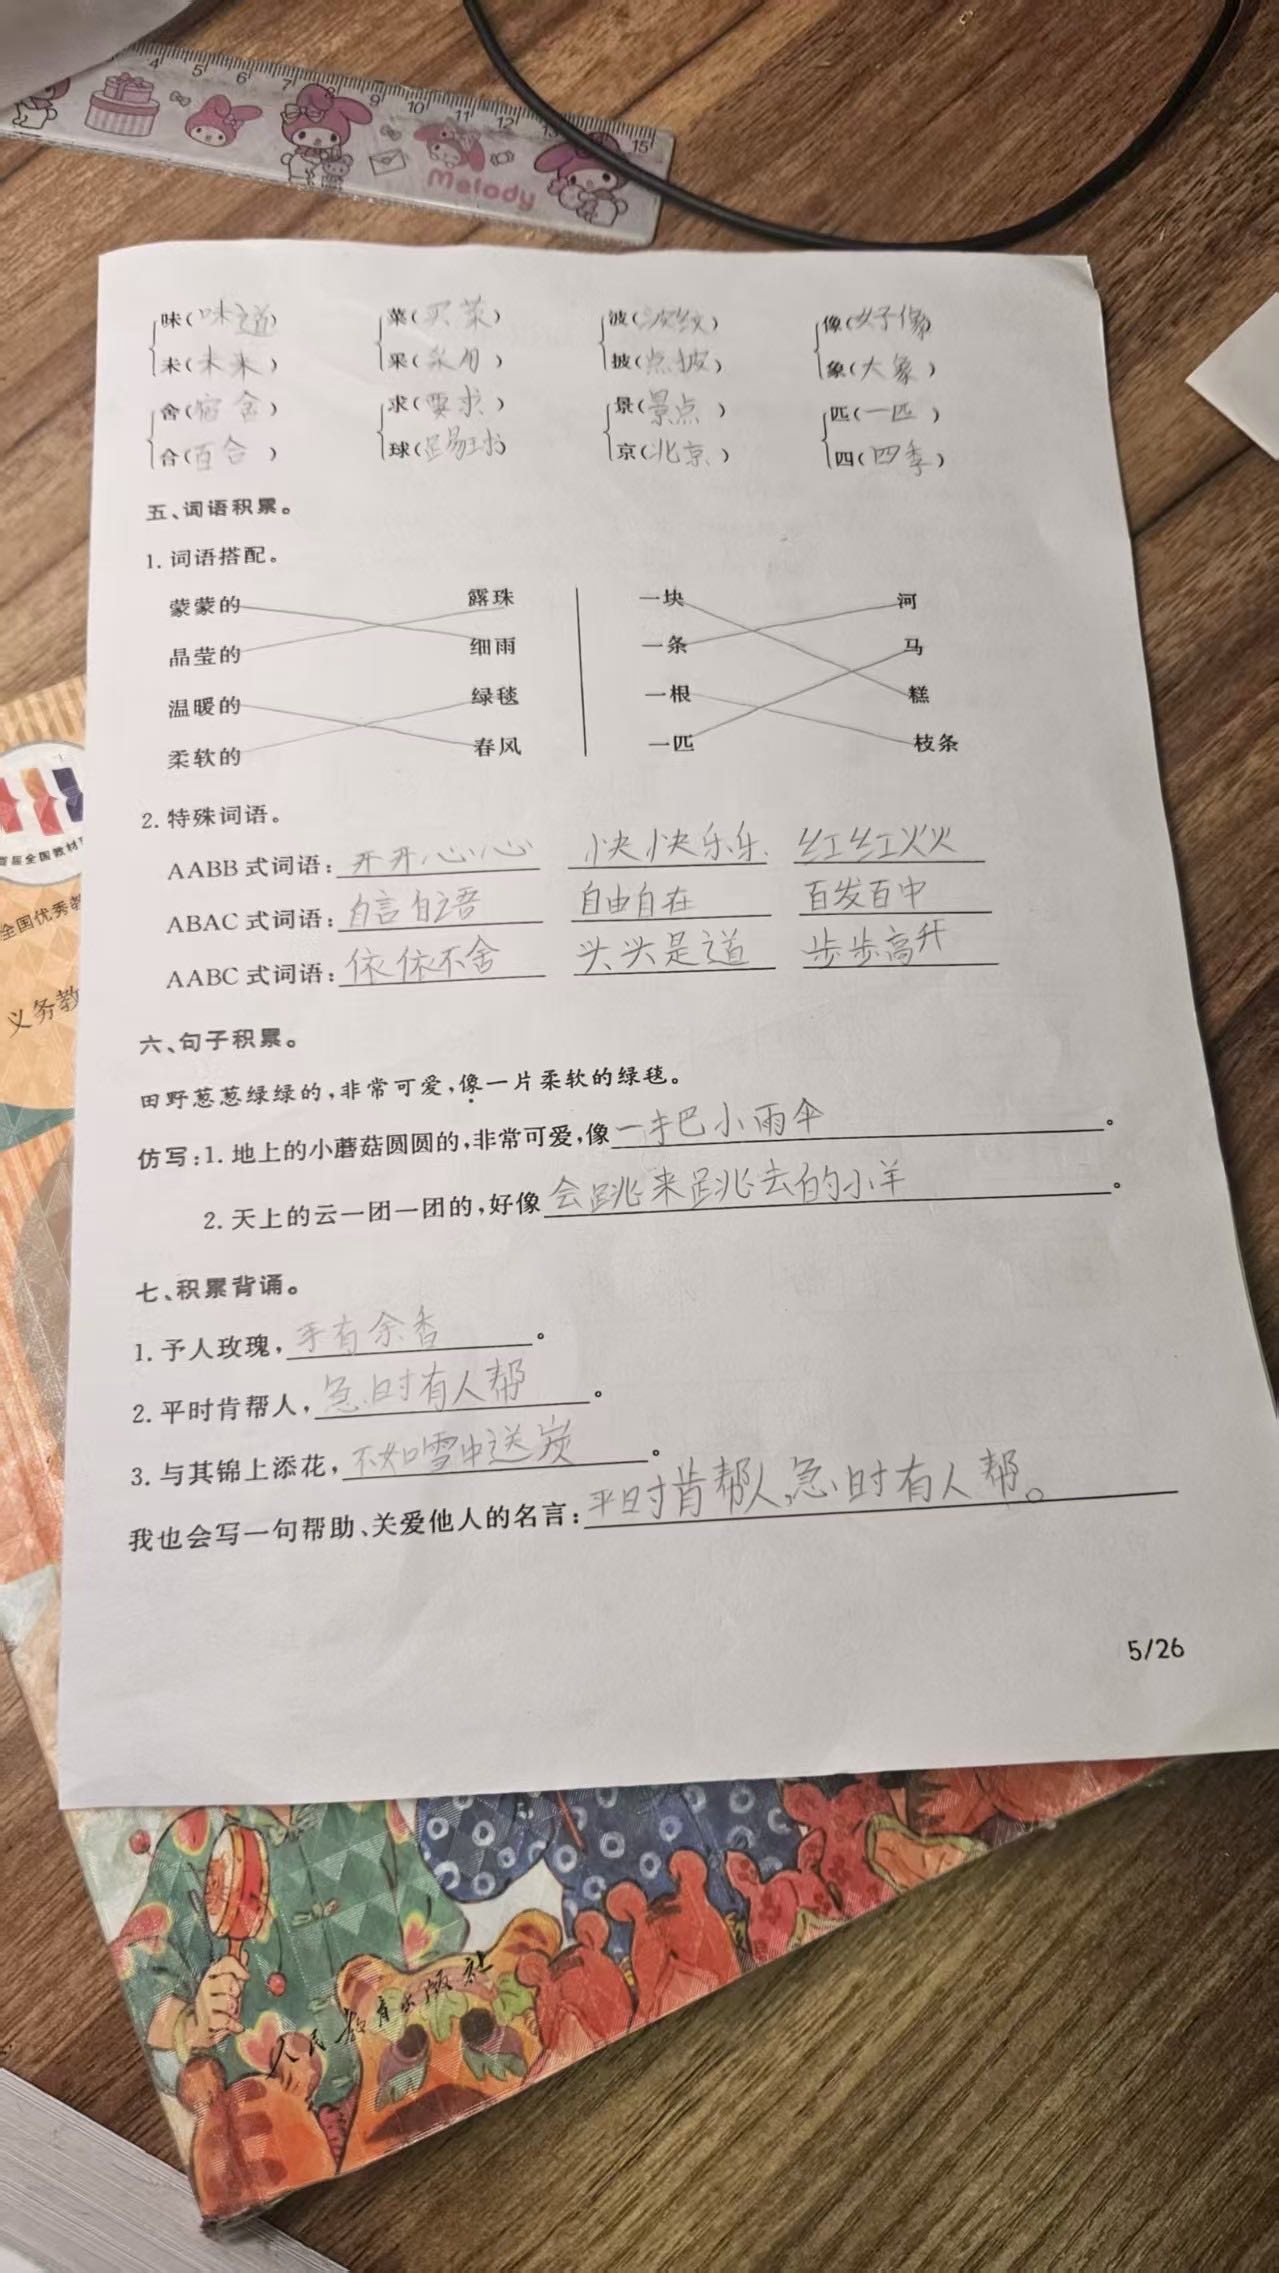 4 5 6 7 8 9 10 11 12 13 15
Melody
味(味道) 菜(买菜) 波(波纹) 像(好像)
未(未来) 采(采用) 披(点披) 象(大象)
舍(宿舍) 求(要求) 景(景点) 匹(一匹)
合(百合) 球(踢球) 京(北京) 四(四季)
五、词语积累。
1. 词语搭配。
蒙蒙的 露珠 一块 河
晶莹的 细雨 一条 马
温暖的 绿毯 一根 糕
柔软的 春风 一匹 枝条
2. 特殊词语。
AABB 式词语:开开心心 快快乐乐 红红火火
ABAC 式词语:自言自语 自由自在 百发百中
AABC 式词语:依依不舍 头头是道 步步高升
六、句子积累。
田野葱葱绿绿的,非常可爱,像一片柔软的绿毯。
仿写:1. 地上的小蘑菇圆圆的,非常可爱,像一把小雨伞。
2. 天上的云一团一团的,好像会跳来跳去的小羊。
七、积累背诵。
1. 予人玫瑰,手有余香。
2. 平时肯帮人,急时有人帮。
3. 与其锦上添花,不如雪中送炭。
我也会写一句帮助、关爱他人的名言:平时肯帮人,急时有人帮。
5/26
首届全国教材
全国优秀教
义务教
人民教育出版社